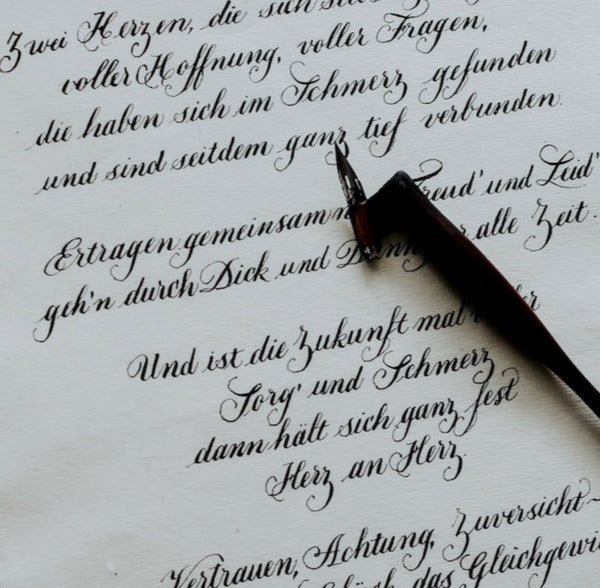 Zwei Herzen, die sich
voller Hoffnung, voller Fragen,
die haben sich im Schmerz gefunden
und sind seitdem ganz tief verbunden.
Ertragen gemeinsam Freud' und Leid'
geh'n durch Dick und Dünn alle Zeit.
Und ist die Zukunft mal
Sorg' und Schmerz
dann hält sich ganz fest
Herz an Herz.
Vertrauen, Achtung, Zuversicht-
das Gleichgewi